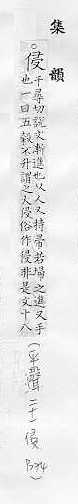 集韻
侵千尋切說文漸進也从人又持帚若埽之進又手
也一曰五穀不升謂之大侵俗作侵非是文十八
(平聲二十一侵 B34)